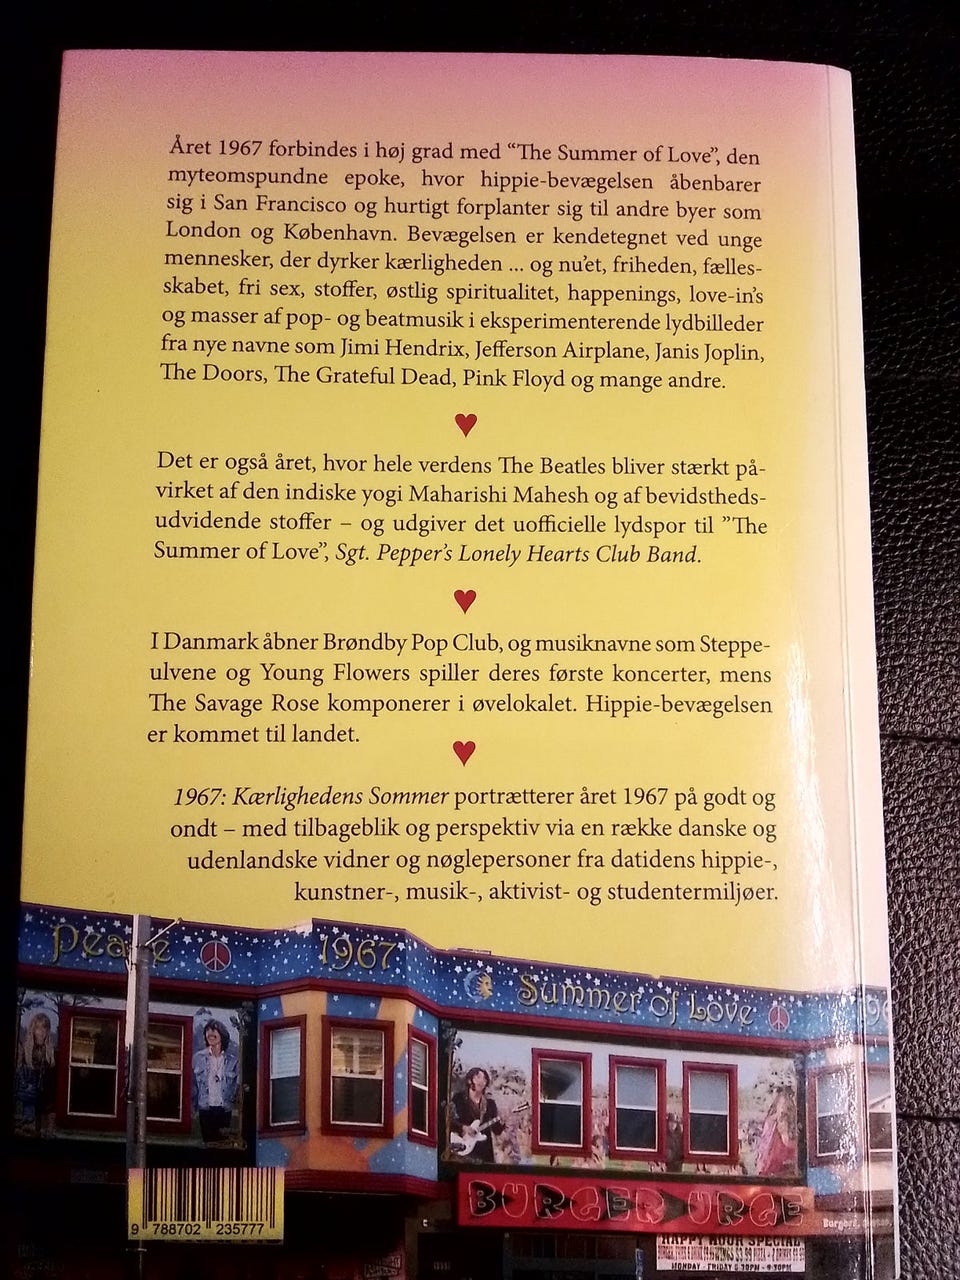 Året 1967 forbindes i høj grad med “The Summer of Love”, den
myteomspundne epoke, hvor hippie-bevægelsen åbenbarer
sig i San Francisco og hurtigt forplanter sig til andre byer som
London og København. Bevægelsen er kendetegnet ved unge
mennesker, der dyrker kærligheden ... og nu’et, friheden, fælles-
skabet, fri sex, stoffer, østlig spiritualitet, happenings, love-in’s
og masser af pop- og beatmusik i eksperimenterende lydbilleder
fra nye navne som Jimi Hendrix, Jefferson Airplane, Janis Joplin,
The Doors, The Grateful Dead, Pink Floyd og mange andre.
Det er også året, hvor hele verdens The Beatles bliver stærkt på-
virket af den indiske yogi Maharishi Mahesh og af bevidstheds-
udvidende stoffer – og udgiver det uofficielle lydspor til ”The
Summer of Love”, Sgt. Pepper’s Lonely Hearts Club Band.
I Danmark åbner Brøndby Pop Club, og musiknavne som Steppe-
ulvene og Young Flowers spiller deres første koncerter, mens
The Savage Rose komponerer i øvelokalet. Hippie-bevægelsen
er kommet til landet.
1967: Kærlighedens Sommer portrætterer året 1967 på godt og
ondt – med tilbageblik og perspektiv via en række danske og
udenlandske vidner og nøglepersoner fra datidens hippie-,
kunstner-, musik-, aktivist- og studentermiljøer.
Peace 1967 Summer of Love
BURGER URGE
HAPPY HOUR SPECIAL
MONDAY - FRIDAY
9 788702 235777